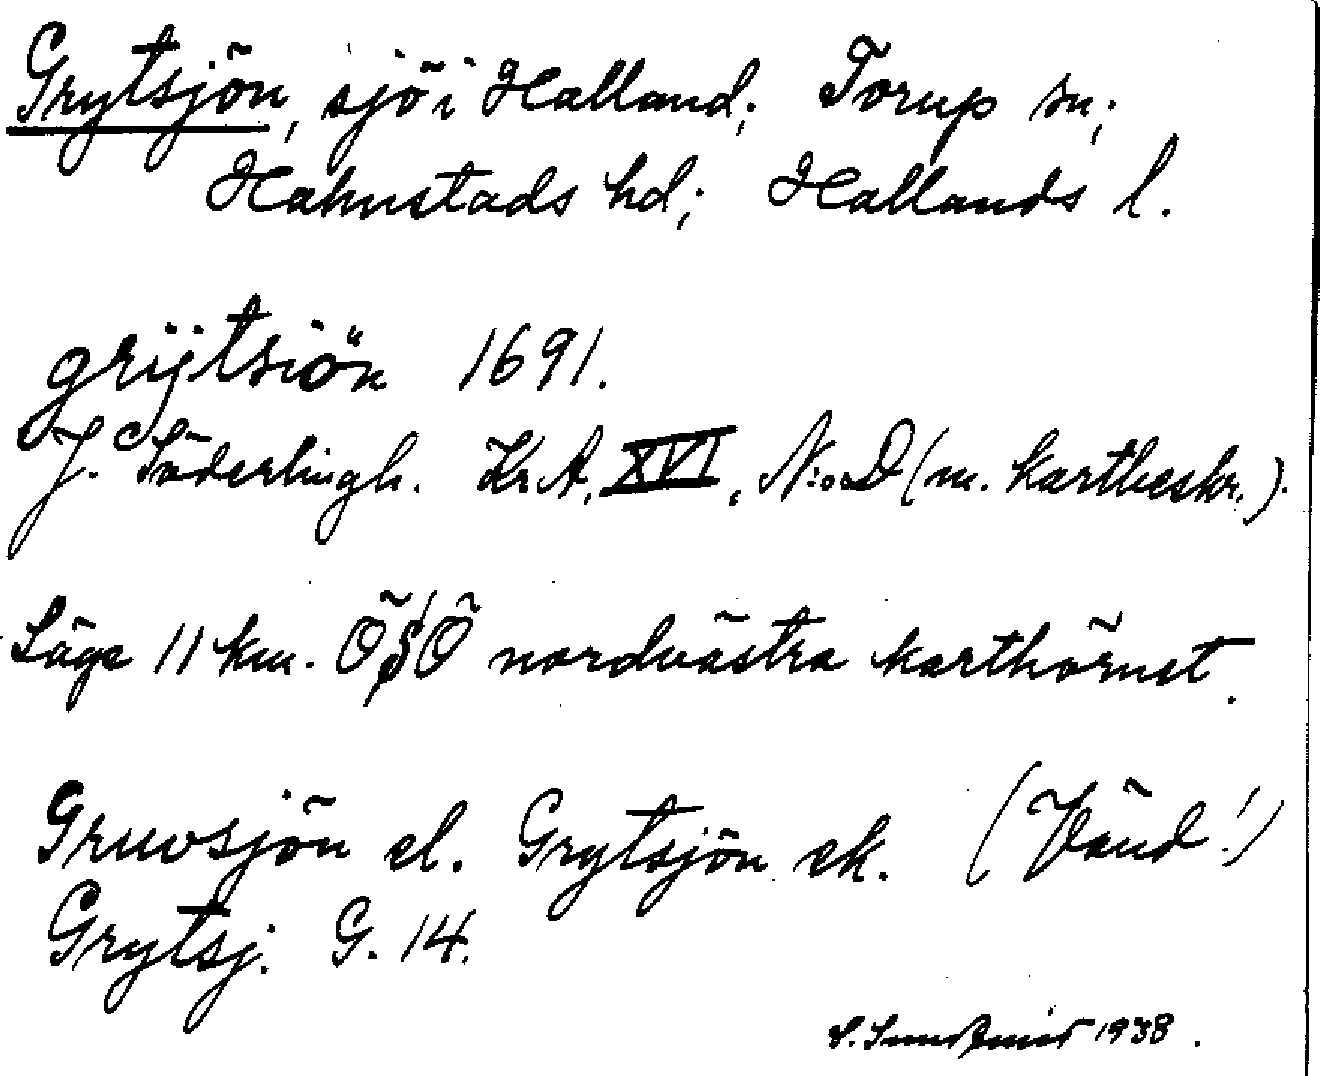 Grytsjön, sjö i Halland; Torup sn;
Halmstads hd; Hallands l.
grÿtsiön 1691.
J. Söderlingh. Kr.A. XVI, N:o D (m. kartbeskr.).
Läge 11 km. ÖSÖ nordvästra karthörnet.
Gruvsjön el. Grytsjön ek. (Vänd!)
Grytsj. G. 14.
1938.